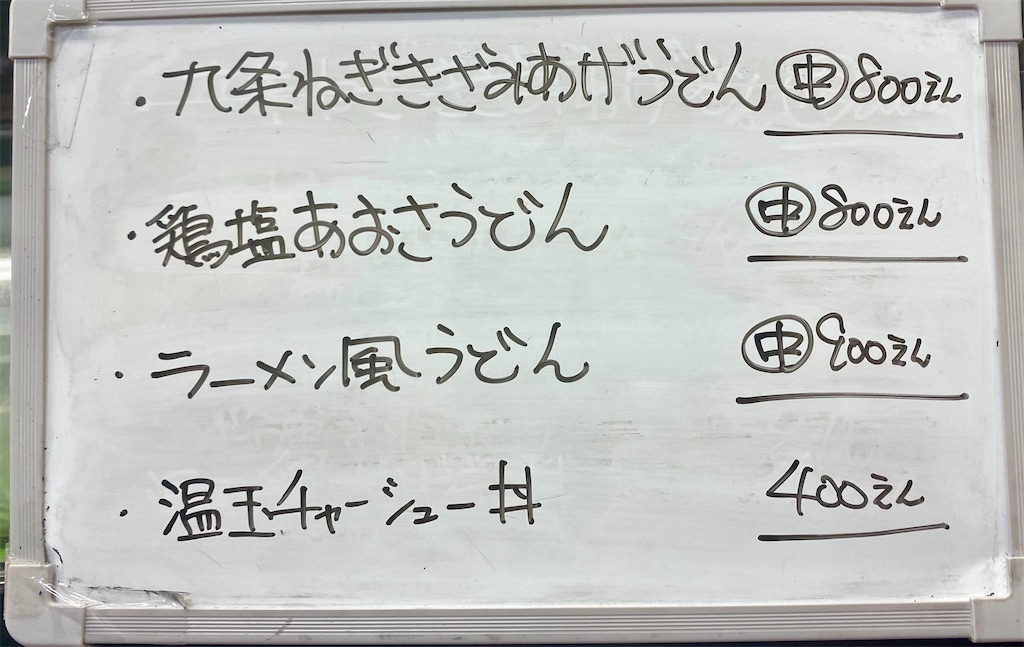 ・九条ねぎきざみあげうどん ㊥800えん
・鶏塩あおさうどん ㊥800えん
・ラーメン風うどん ㊥900えん
・温玉チャーシュー丼 400えん